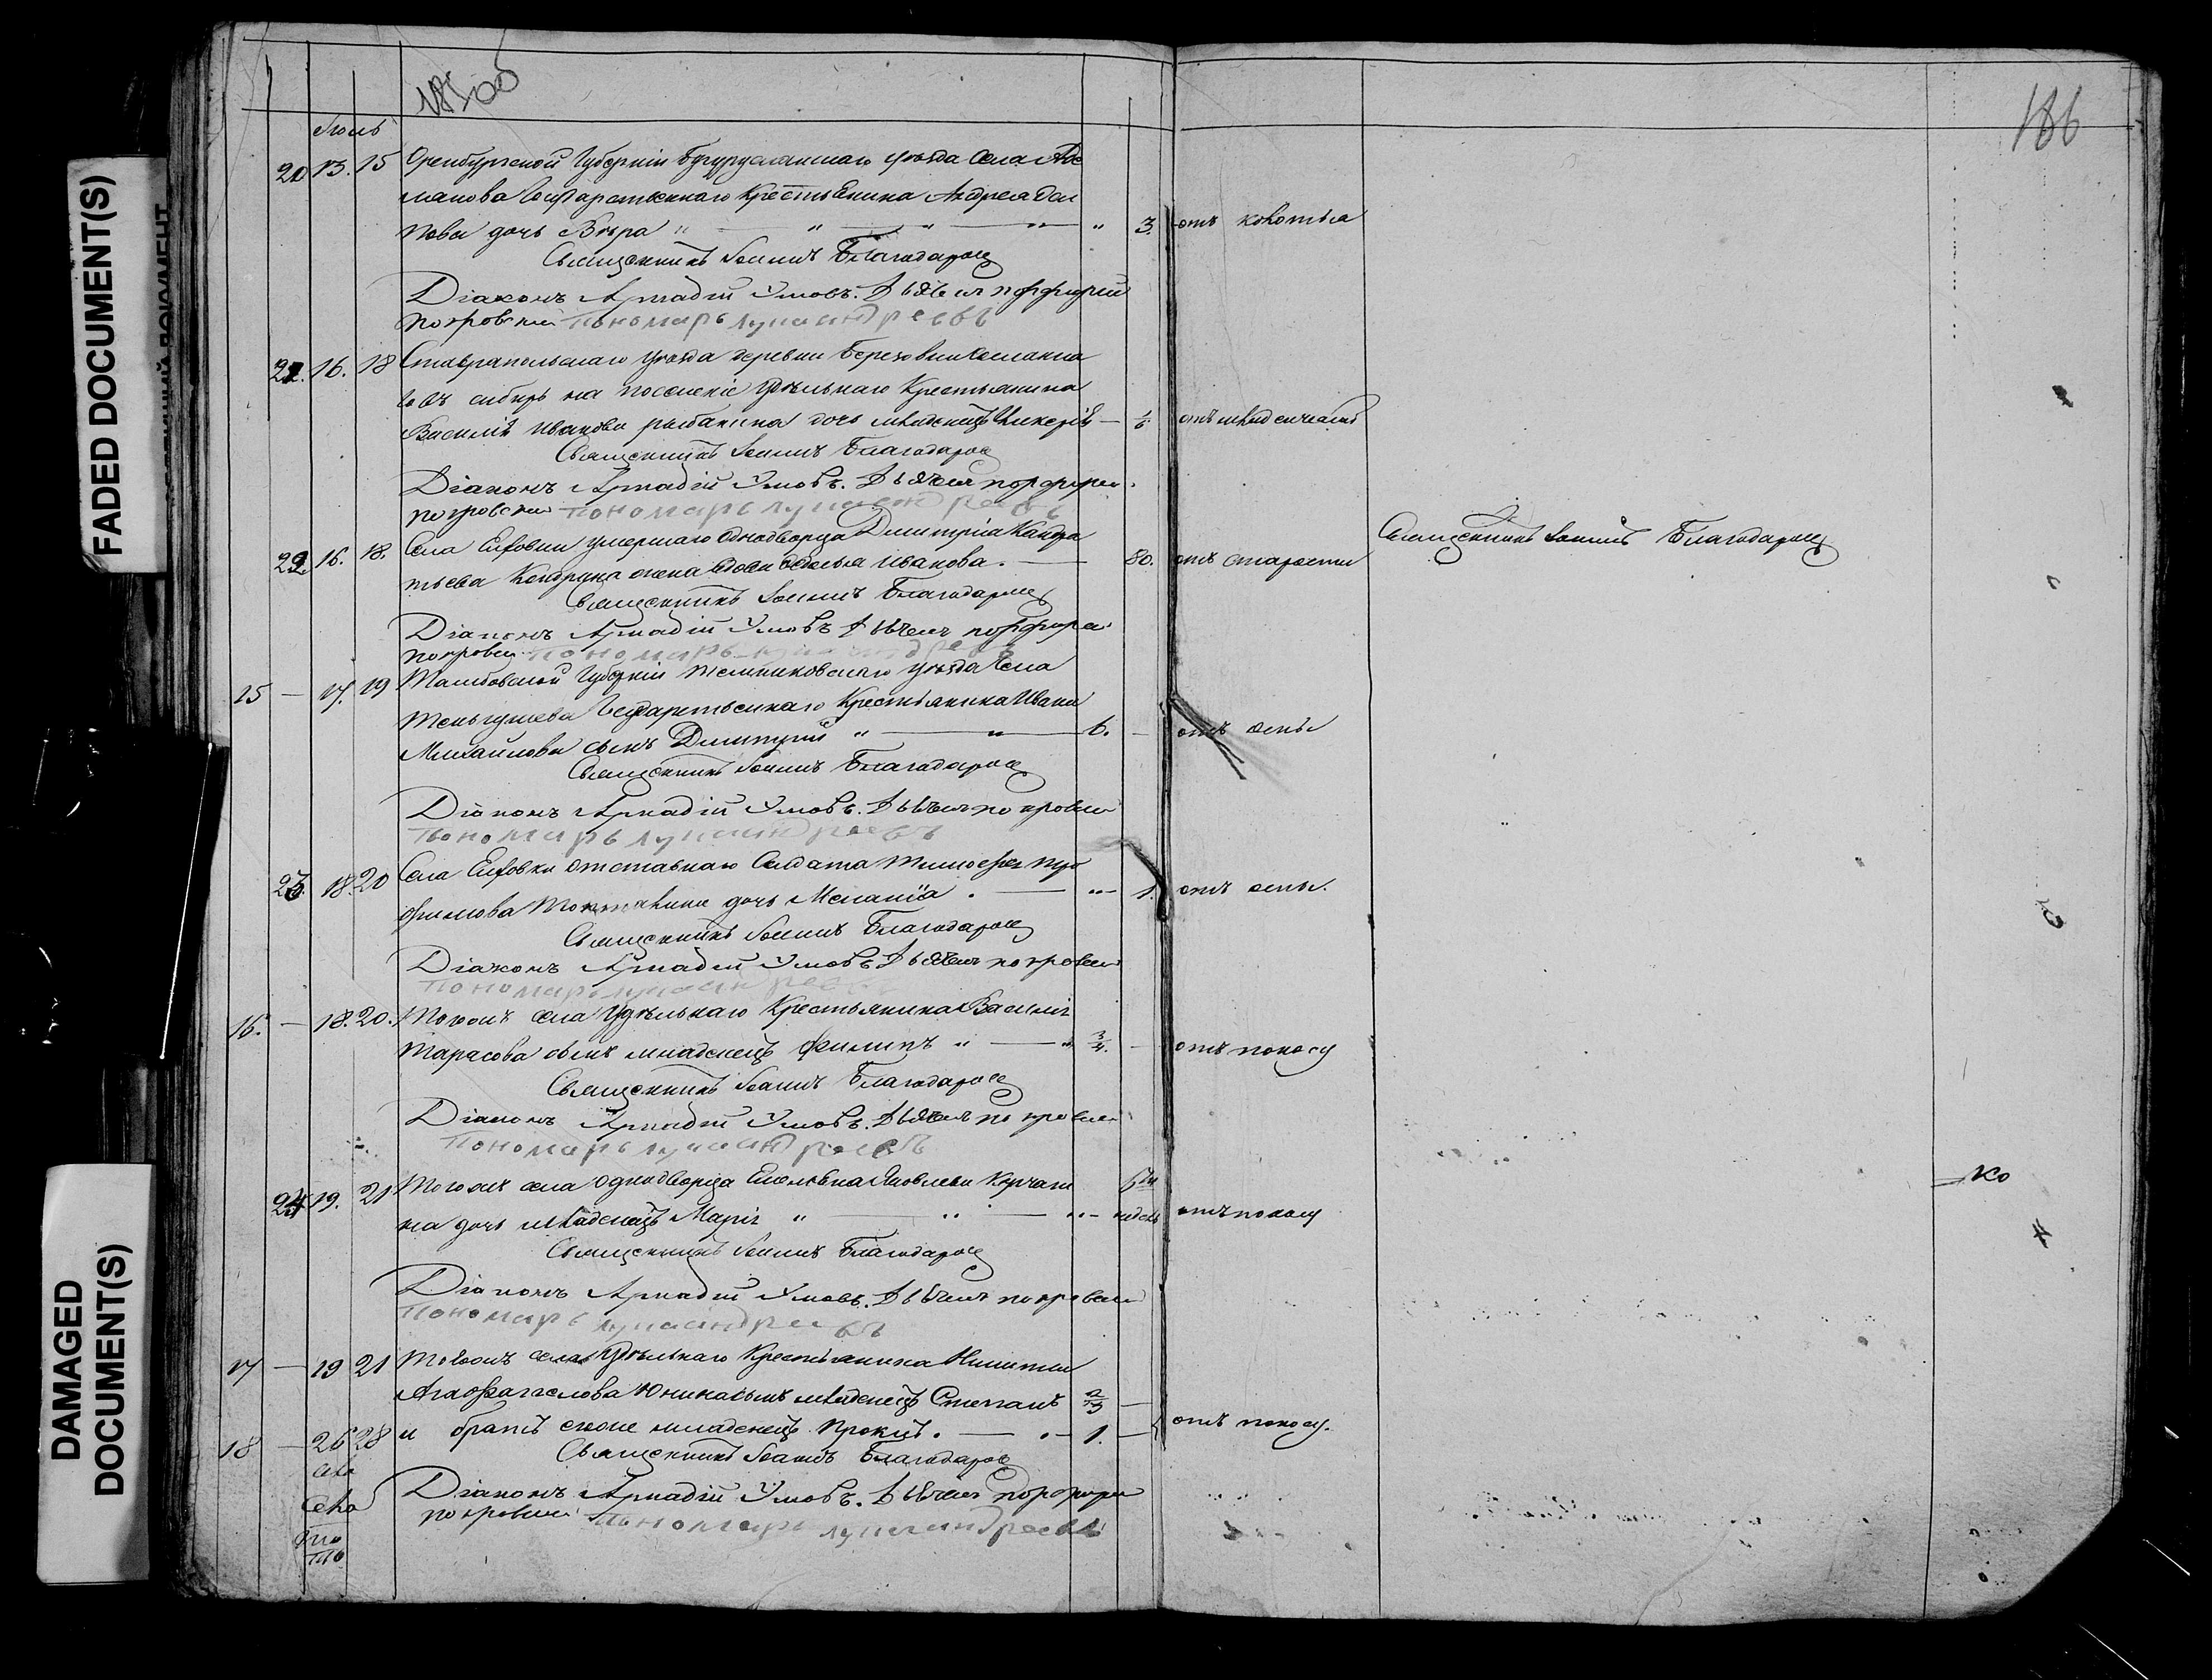 FADED DOCUMENT(S)
DAMAGED DOCUMENT(S)
185 об
186
Июль
20 13. 15 Оренбургской Губерніи Бугурусланскаго уѣзда Села
Государственнаго Крестьянина Андрея
дочь Вѣра " — " — " — " 3. отъ колотья
Священникъ Іоаннъ Благодаровъ
Діаконъ Аркадій Умовъ. Дьячекъ порфирій
покровскій Пономарь лука андреевъ
21. 16. 18 Ставрапольскаго уѣзда деревни Березовки
въ сибирь на поселеніе Удѣльнаго Крестьянина
Василія Иванова рыбакина дочь младенецъ — отъ младенческой
Священникъ Іоаннъ Благодаровъ
Діаконъ Аркадій Умовъ. Дьячекъ порфирій
покровскій Пономарь лука андреевъ
22. 16. 18. Села Елховки умершаго Однодворца Димитрія Кондра
тьева жена вдова Иванова. — 80. отъ старости
Священникъ Іоаннъ Благодаровъ
Священникъ Іоаннъ Благодаровъ
Діаконъ Аркадій Умовъ Дьячекъ порфирій
покровскій Пономарь лука андреевъ
15 — 17. 19 Тамбовской Губерніи темниковскаго уѣзда Села
Теньгушева Государственнаго Крестьянина Ивана
Михайлова сынъ Димитрій " — " — 6. — отъ оспы
Священникъ Іоаннъ Благодаровъ
Діаконъ Аркадій Умовъ. Дьячекъ покровскій
Пономарь лука андреевъ
23. 18. 20 Села Елховки Отставнаго Солдата Тимофея Тро
фимова дочь Меланія . — " — 1. отъ оспы.
Священникъ Іоаннъ Благодаровъ
Діаконъ Аркадій Умовъ Дьячекъ покровскій
Пономарь лука андреевъ
16. — 18. 20. Тогожъ села Удѣльнаго Крестьянина Василія
Тарасова сынъ младенецъ Филипъ " — " 3/4. — отъ поносу
Священникъ Іоаннъ Благодаровъ
Діаконъ Аркадій Умовъ. Дьячекъ покровскій
Пономарь лука андреевъ
24 19. 21 Тогожъ села Однодворца Яковлева Корчаги
на дочь младенецъ Марія " — " — " — недель отъ поносу
ко
Священникъ Іоаннъ Благодаровъ
Діаконъ Аркадій Умовъ. Дьячекъ покровскій
Пономарь лука андреевъ
17 — 19 21 Тогожъ села Удѣльнаго Крестьянина Никиты
сынъ младенецъ Степанъ 2/3 —
18 — 26 28 и братъ младенецъ . — 1. — отъ поносу.
Священникъ Іоаннъ Благодаровъ
Діаконъ Аркадій Умовъ. Дьячекъ порфирій
покровскій Пономарь лука андреевъ